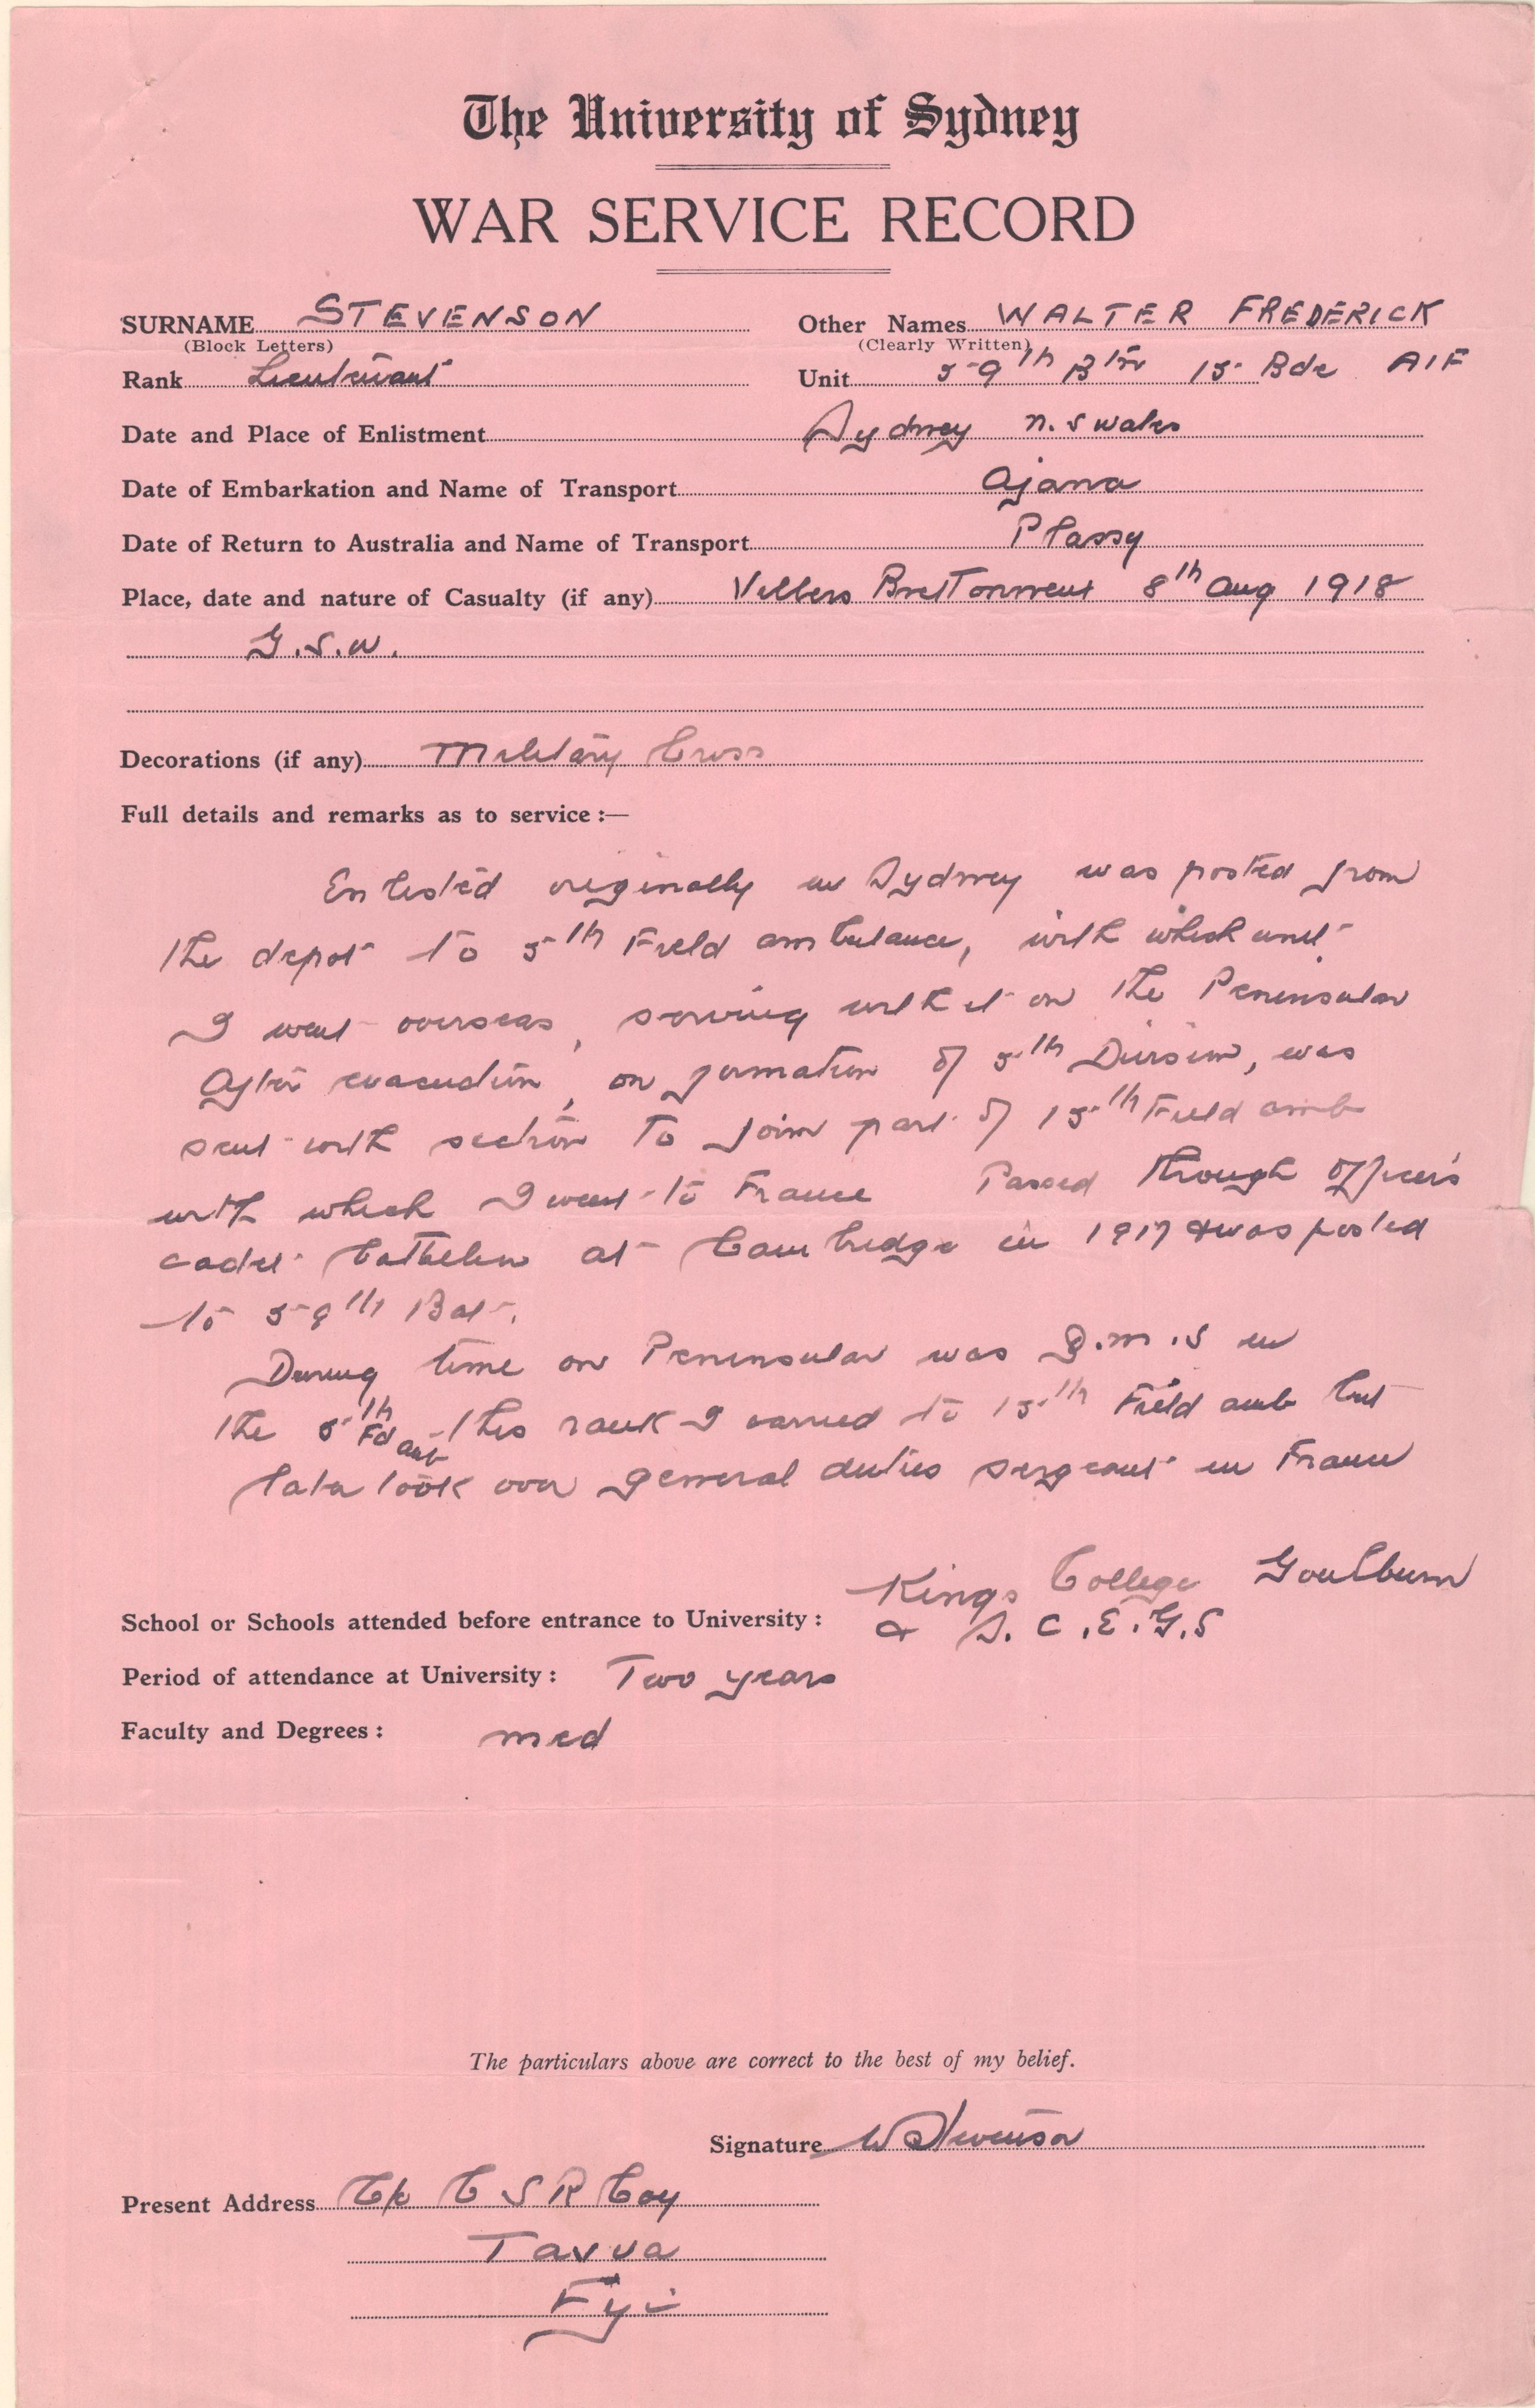 The University of Sydney
WAR SERVICE RECORD
SURNAME STEVENSON Other Names WALTER FREDERICK
(Block Letters) (Clearly Written)
Rank Lieutenant Unit 59th Btn 15 Bde AIF
Date and Place of Enlistment Sydney N.S Wales
Date of Embarkation and Name of Transport Ajana
Date of Return to Australia and Name of Transport Plassy
Place, date and nature of Casualty (if any) Villers 8th Aug 1918
G.S.W.
Decorations (if any) Military Cross
Full details and remarks as to service :—
Enlisted originally in Sydney was posted from
the depot to 5th Field ambulance, with which unit
I went overseas, serving with it on the Peninsular
After evacuation, on formation of 5th Division, was
sent with section to join part of 15th Field amb
with which I went to France Passed through Officers
cadet at Cambridge in 1917 & was posted
to 59th Bat.
During time on Peninsular was Q.M.S in
the 5th Fd amb this rank I carried to 15th Field amb but
later took over general duties sergeant in France
School or Schools attended before entrance to University : Kings College Goulburn
& S.C.E.G.S
Period of attendance at University : Two years
Faculty and Degrees : Med
The particulars above are correct to the best of my belief.
Signature W Stevenson
Present Address C/o C S R Coy
Tavua
Fiji